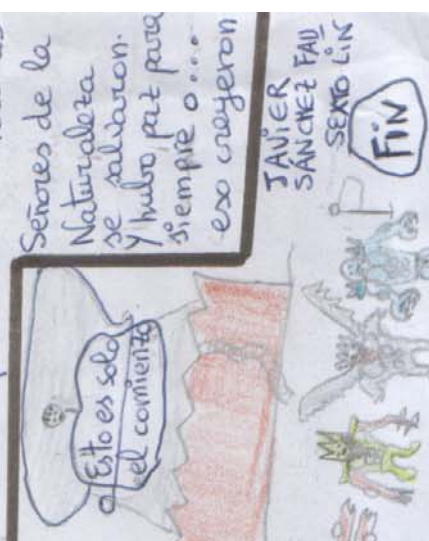 Señores de la
Naturaleza
se salvaron.
Y hubo paz para
siempre o...
eso creyeron
Esto es solo
el comienzo
JAVIER
SÁNCHEZ FAU
SEXTO LIN
FIN